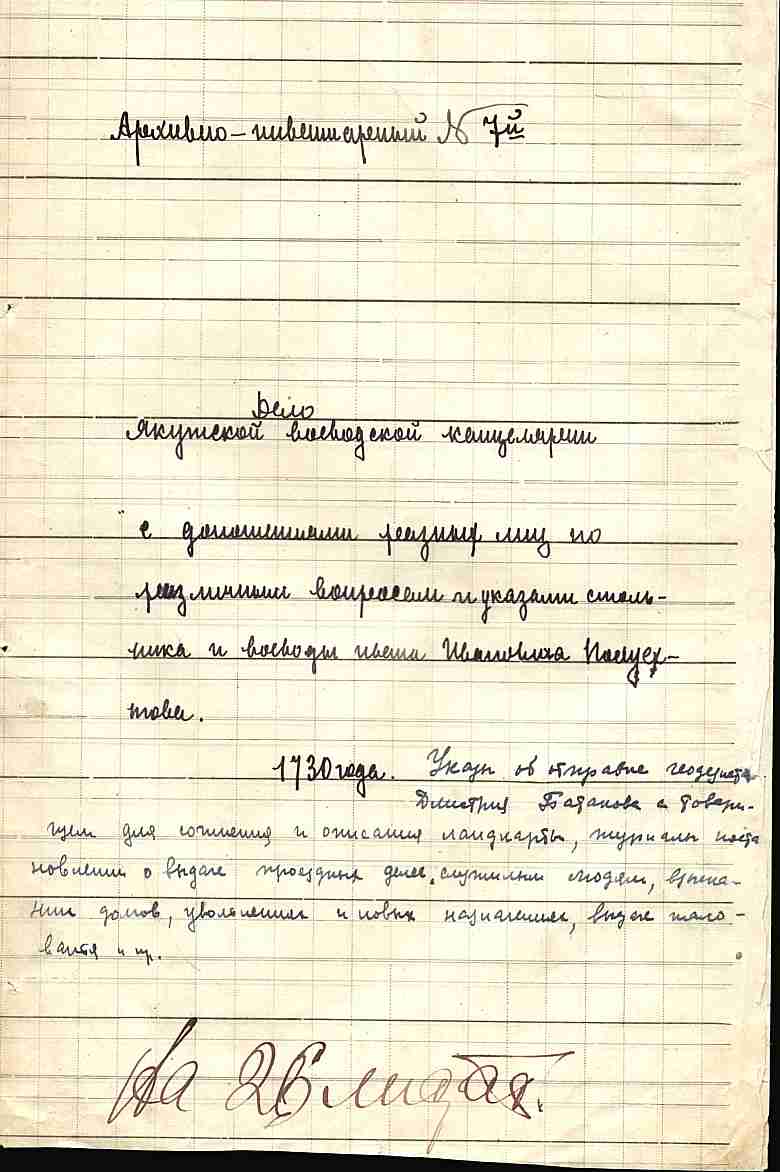 Архивно-инвентарный № 7й
Дело
Якутской воеводской канцелярии
с доношениями разных лиц по
различным вопросам и указами столь-
ника и воеводы Ивана Ивановича Полуех-
това.
1730 года. Указы об отправке геодезиста
Дмитрия Баскакова с товари-
щем для сочинения и описания ландкарты, журналы поста
новлений о выдаче проездных денег служилым людям, взыска-
нии домов, увольнениях и новых назначениях, выдаче жало-
вания и пр.
На 26 листах.